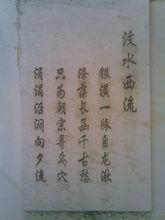 汶水西流
银汉一脉自龙湫
涤荡长垂千古愁
只为朝宗寻禹穴
涓涓沿涧向夕流